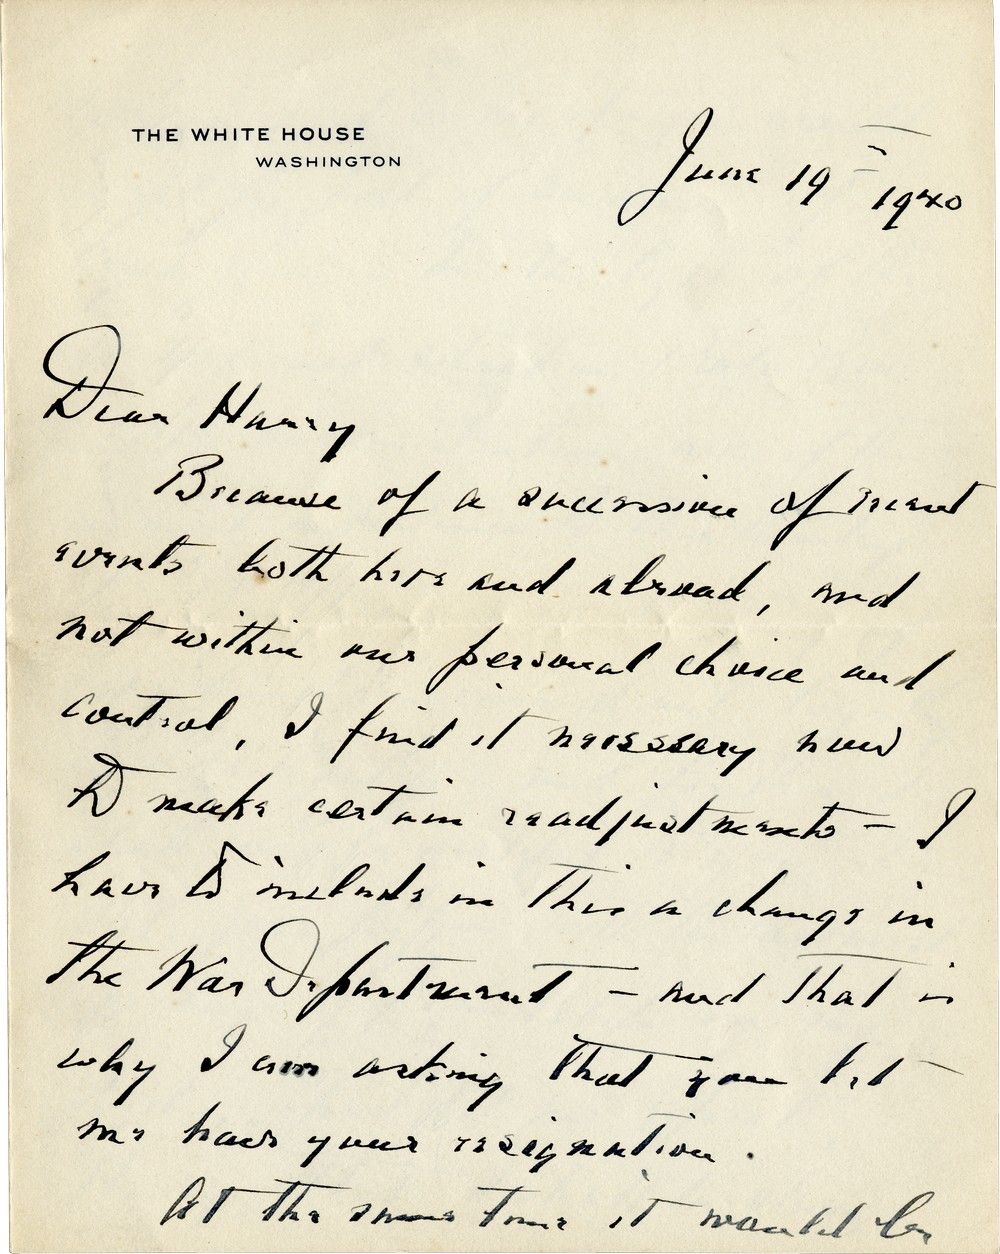 THE WHITE HOUSE
WASHINGTON
June 19th 1940
Dear Harry
Because of a succession of recent
events both here and abroad, and
not within our personal choice and
control, I find it necessary now
to make certain readjustments — I
have to include in this a change in
the War Department — and that is
why I am asking that you let
me have your resignation.
At the same time it would be